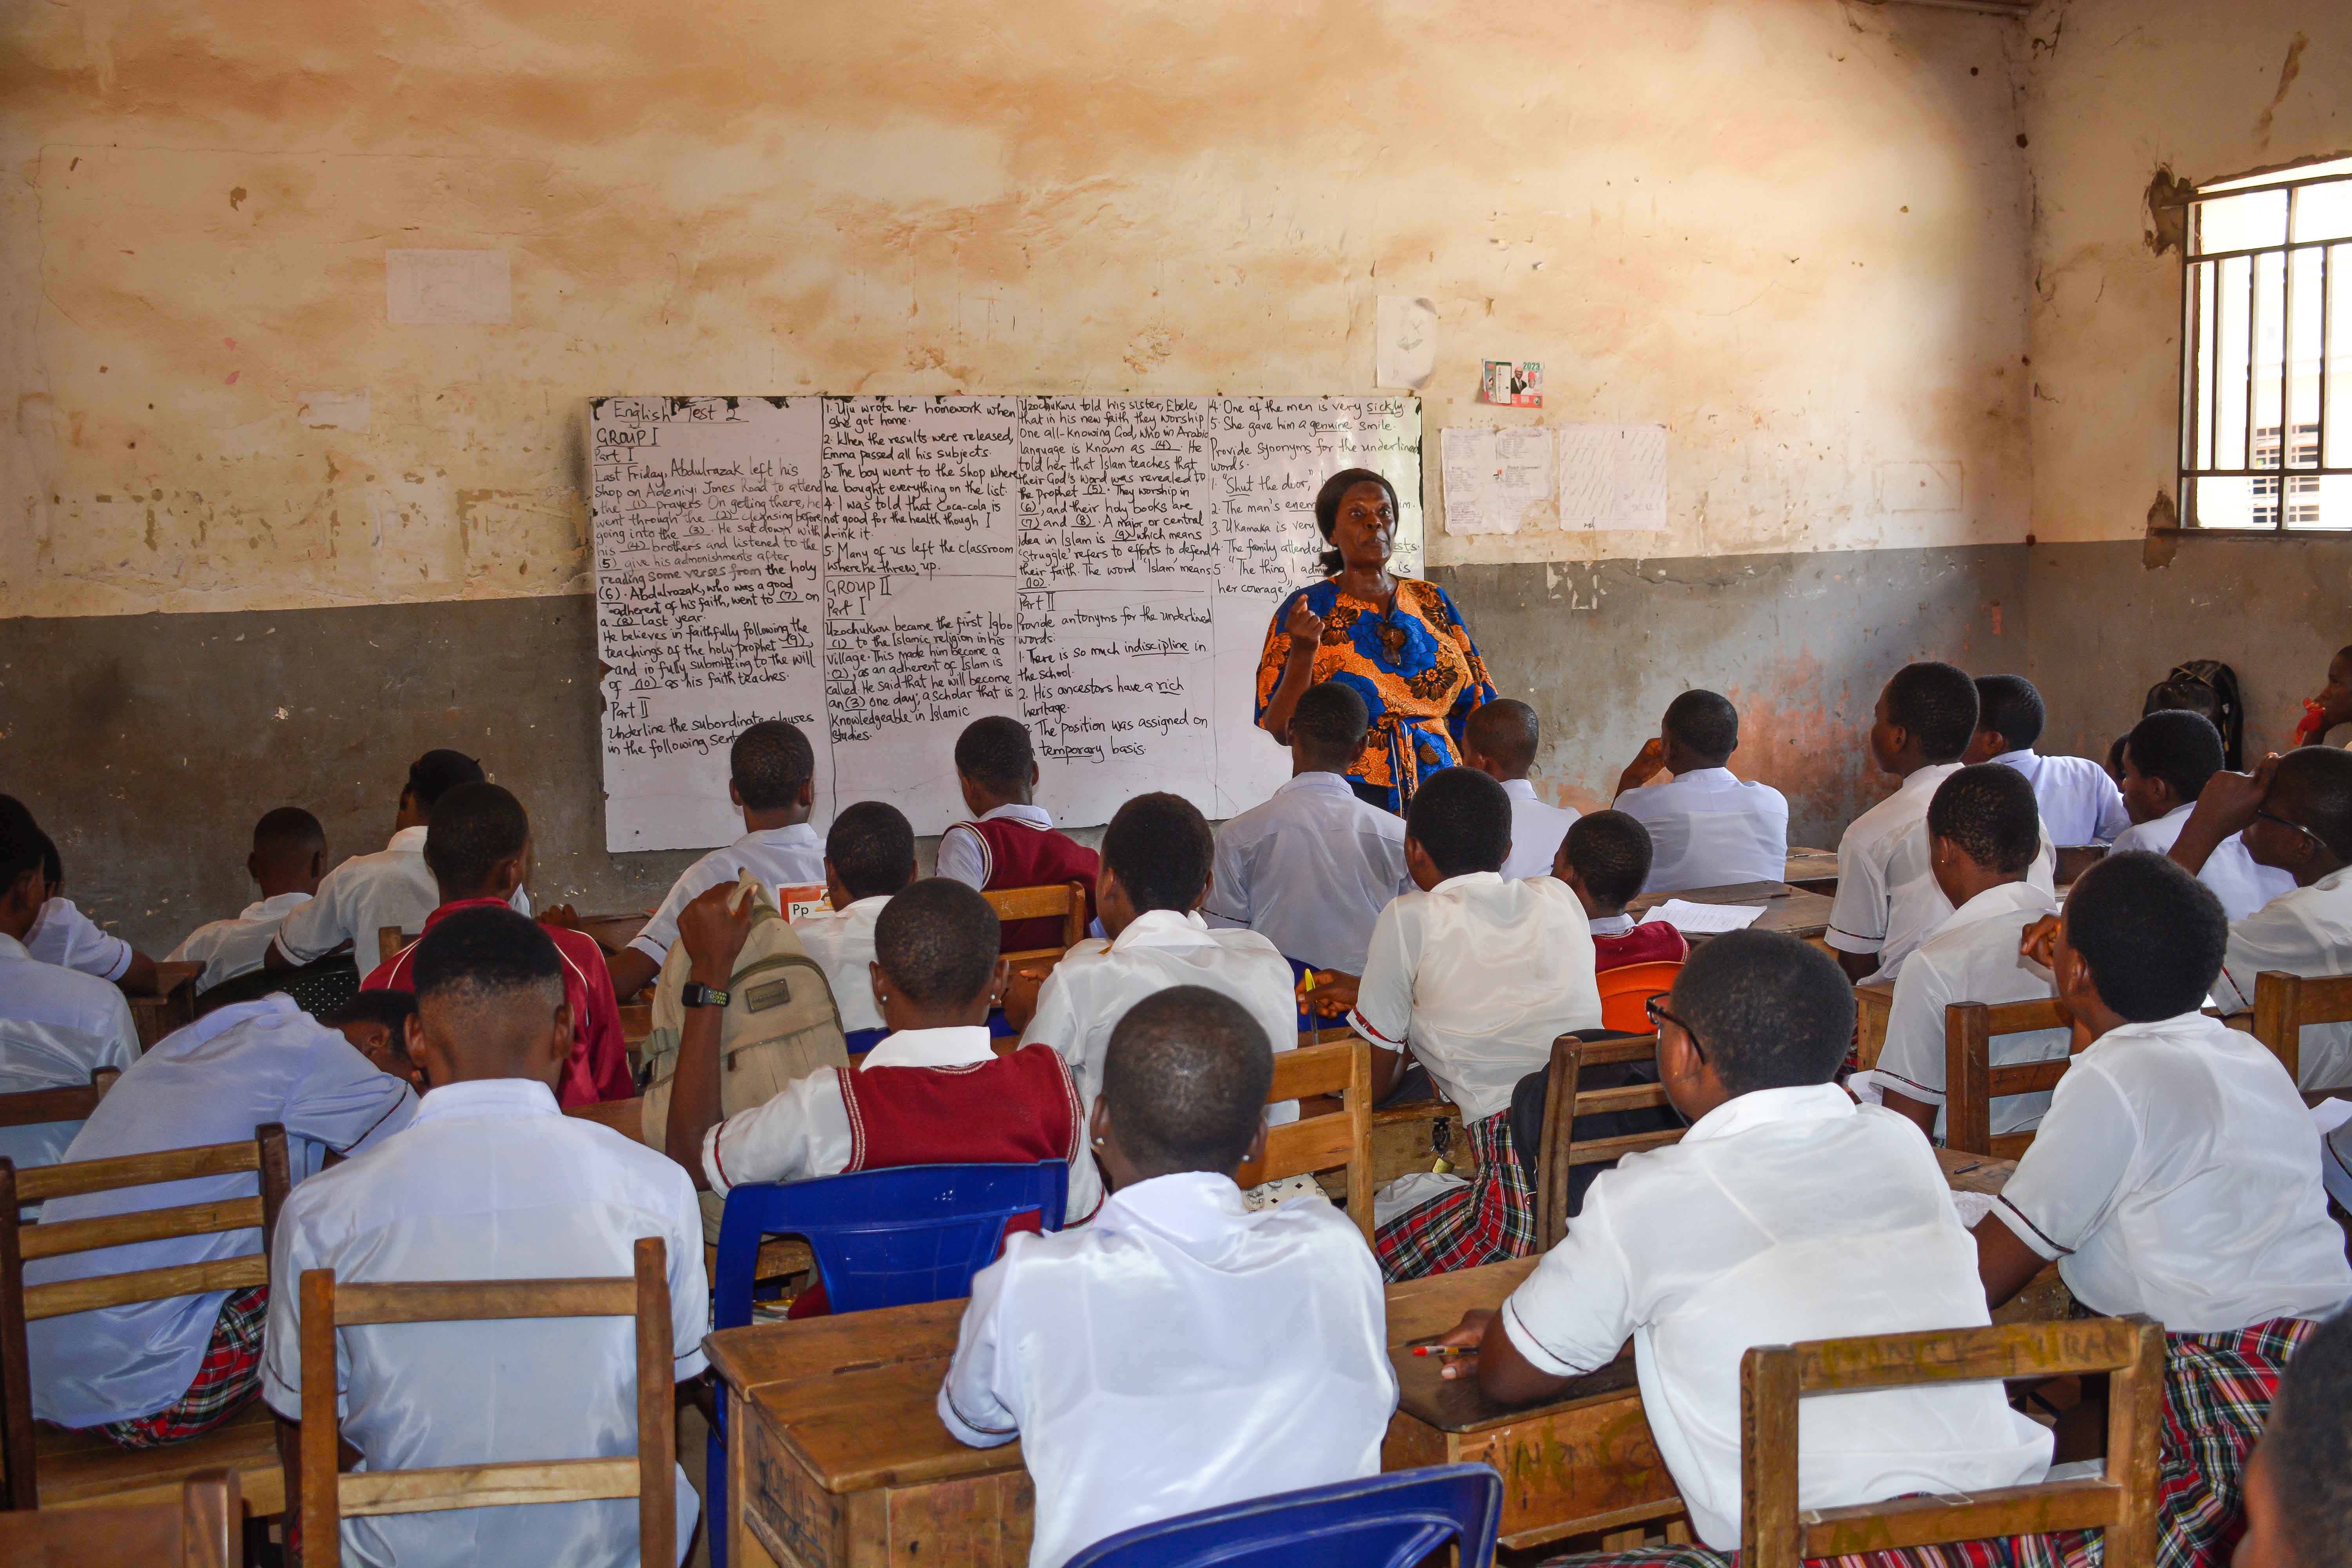 English Test 2
GROUP I
Part I
Last Friday, Abdulrazak left his
shop on Adeniyi Jones Road to attend
the (1) prayers. On getting there, he
went through the (2) cleansing before
going into the (3). He sat down with
his (4) brothers and listened to the
(5) give his admonishments after
reading some verses from the holy
(6). Abdulrazak, who was a good
adherent of his faith, went to (7) on
a (8) last year.
He believes in faithfully following the
teachings of the holy prophet (9),
and in fully submitting to the will
of (10) as his faith teaches.
Part II
Underline the subordinate clauses
in the following
1. Uju wrote her homework when
she got home.
2. When the results were released,
Emma passed all his subjects.
3. The boy went to the shop where
he bought everything on the list.
4. I was told that Coca-cola is
not good for the health though I
drink it.
5. Many of us left the classroom
where he threw up.
GROUP II
Part I
Uzochukwu became the first Igbo
(1) to the Islamic religion in his
village. This made him become a
(2), as an adherent of Islam is
called. He said that he will become
an (3) one day; a scholar that is
knowledgeable in Islamic
Studies.
Uzochukwu told his sister, Ebele
that in his new faith they worship
One all-knowing God, who in Arabic
language is known as (4). He
told her that Islam teaches that
their God's word was revealed to
the prophet (5). They worship in
(6), and their holy books are
(7) and (8). A major or central
idea in Islam is (9) which means
'struggle' refers to efforts to defend
their faith. The word 'Islam' means
(10).
Part II
Provide antonyms for the underlined
words.
1. There is so much indiscipline in
the school.
2. His ancestors have a rich
heritage.
The position was assigned on
temporary basis.
4. One of the men is very sickly.
5. She gave him a genuine smile.
Provide synonyms for the underlined
words.
1. "Shut the door,"
2. The man's
3. Ukamaka is very
4. The family attended
5. "The thing I is
her courage,"
2023
Pp